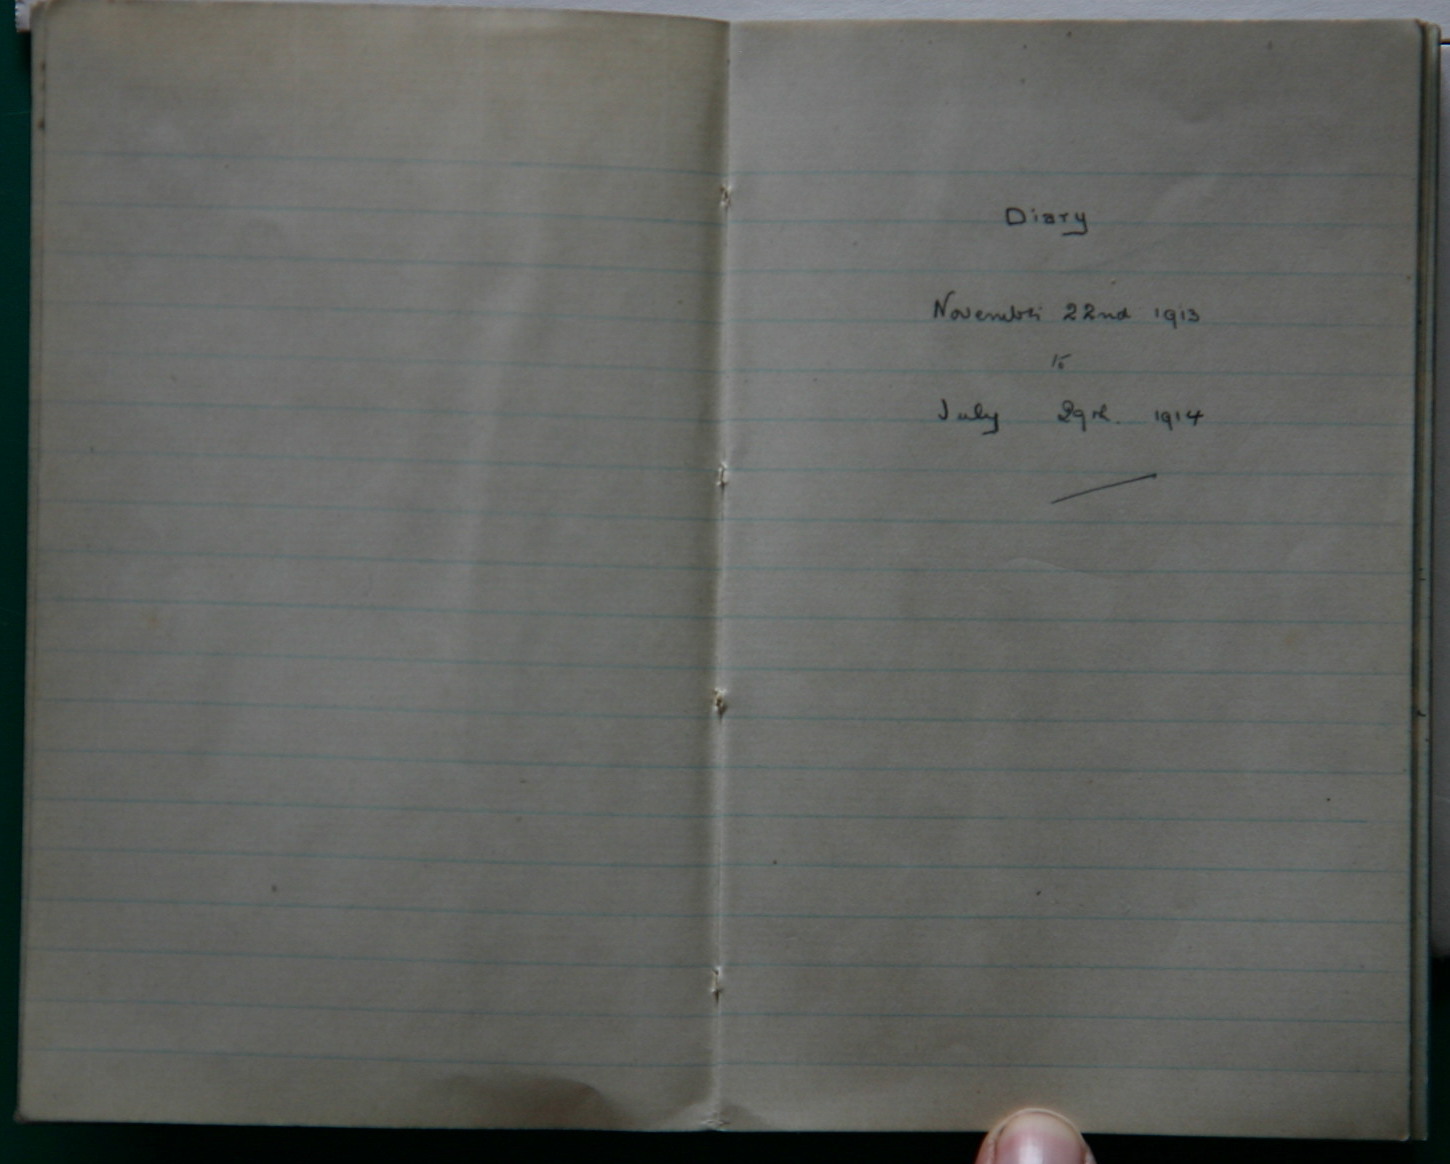 Diary
November 22nd 1913
to
July 29th. 1914